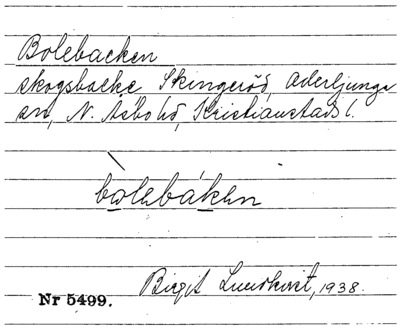 Bolebacken
skogsbacke Skingeröd, Oderljunga
sn, N. Åsbo hd, Kristianstads l.
bòlebáken
Birgit Lundkvist, 1938.
Nr 5499.